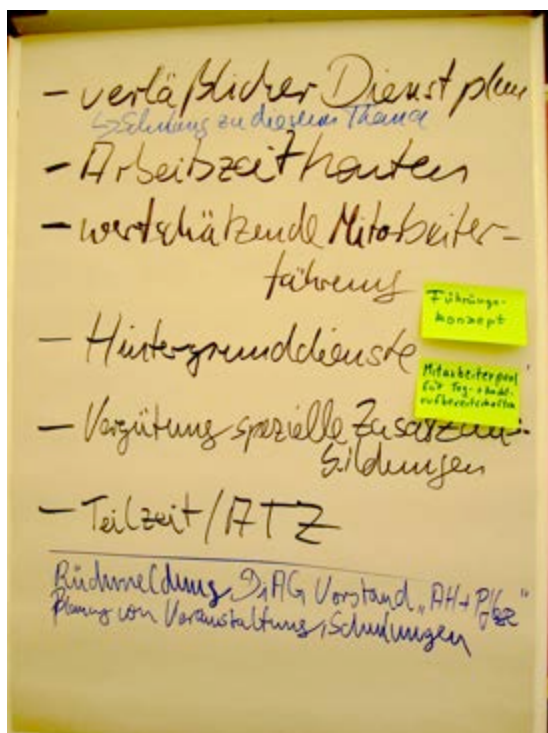 - verläßlicher Dienstplan
↳ Schulung zu diesem Thema
- Arbeitszeitkonten
- wertschätzende Mitarbeiter-
führung
Führungs-
konzept
- Hintergrunddienste
Mitarbeiterpool
für Tag- + Nacht-
rufbereitschaften
- Vergütung spezielle Zusatzaus-
bildungen
- Teilzeit/ATZ
Rückmeldung DiAG Vorstand „AH+
Planung von Veranstaltung, Schulungen